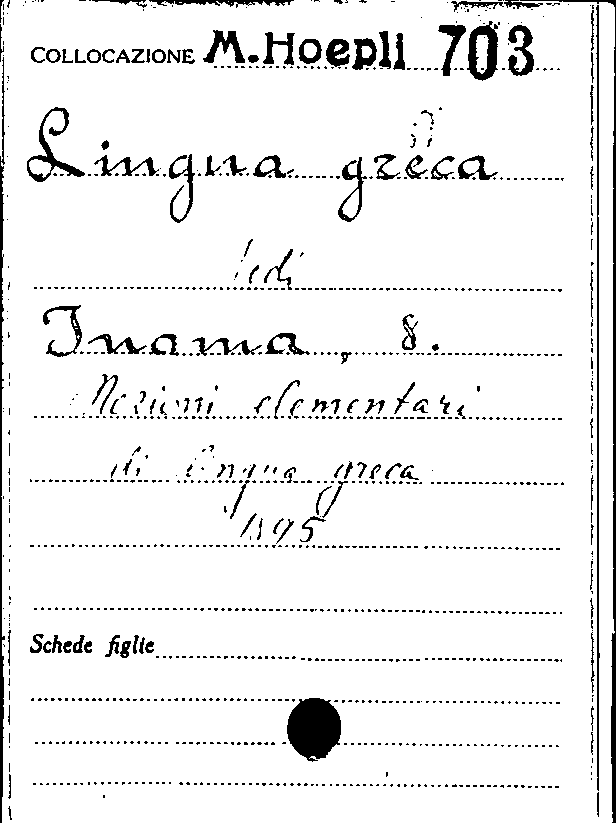 COLLOCAZIONE M.Hoepli 703
Lingua greca
vedi
Inama, V.
Nozioni elementari
di lingua greca
1895
Schede figlie